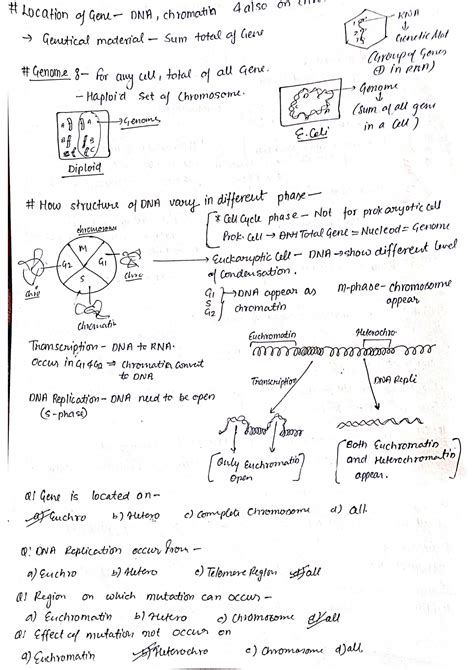 # Location of Gene - DNA, chromatin & also on
→ Genetical material - Sum total of Gene
RNA
Genetic Mat
(Group of Genes
in RNA)
# Genome :- for any cell, total of all Gene.
- Haploid Set of Chromosome.
→ Genome
Diploid
Genome
(Sum of all gene
in a Cell)
E.Coli
# How structure of DNA vary in different phase -
chromosome
M
G2
G1
S
Chro
Chro
Chromatin
* Cell Cycle phase - Not for prokaryotic cell
Prok. Cell → Total Gene = Nucleod = Genome
→ Eukaryotic Cell - DNA → show different level
of Condensation.
G1
S
G2
→ DNA appear as
chromatin
M-phase - chromosome
appear
Transcription - DNA to RNA.
Occur in G1 & G2 ⇒ Chromatin Convert
to DNA
DNA Replication - DNA need to be open
(S-phase)
Euchromatin
Heterochro.
Transcription
DNA Repli
Only Euchromatin
Open
Both Euchromatin
and Heterochromatin
appear.
Q! Gene is located on -
a) Euchro b) Hetero c) Complete Chromosome d) all.
Q! DNA Replication occur from -
a) Euchro b) Hetero c) Telomere Region d) all
Q! Region on which mutation can occur -
a) Euchromatin b) Hetero c) Chromosome d) all
Q! Effect of mutation not occur on
a) Euchromatin b) Heterochro c) Chromosome d) all